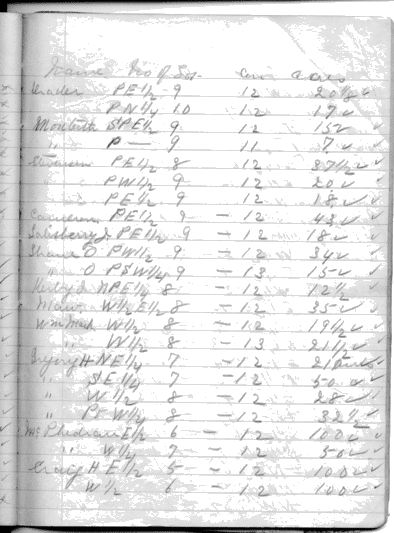 Name No of Lot Con acres
PE 1/2 9 12 20 1/2
PN 1/4 10 12 17
SPE 1/2 9 12 15
" P — 9 11 7
PE 1/2 8 12 37 1/2
" PW 1/2 9 12 20
" PE 1/2 9 12 18
Cameron PE 1/2 9 - 12 43
Salisberry J PE 1/2 9 - 12 18
O PW 1/2 9 - 12 34
" O PSW 1/4 9 - 13 15
NPE 1/2 8 - 12 12 1/2
W 1/2 E 1/2 8 - 12 35
Wm W 1/2 8 - 12 19 1/2
" W 1/2 8 - 13 21 1/2
H NE 1/4 7 - 12 21
" SE 1/4 7 - 12 50
" W 1/2 8 - 12 28
" W 1/4 8 - 12 32 1/2
McPhedran E 1/2 6 - 12 100
" W 1/4 7 - 12 50
Craig H E 1/2 5 - 12 100
W 1/2 6 - 12 100